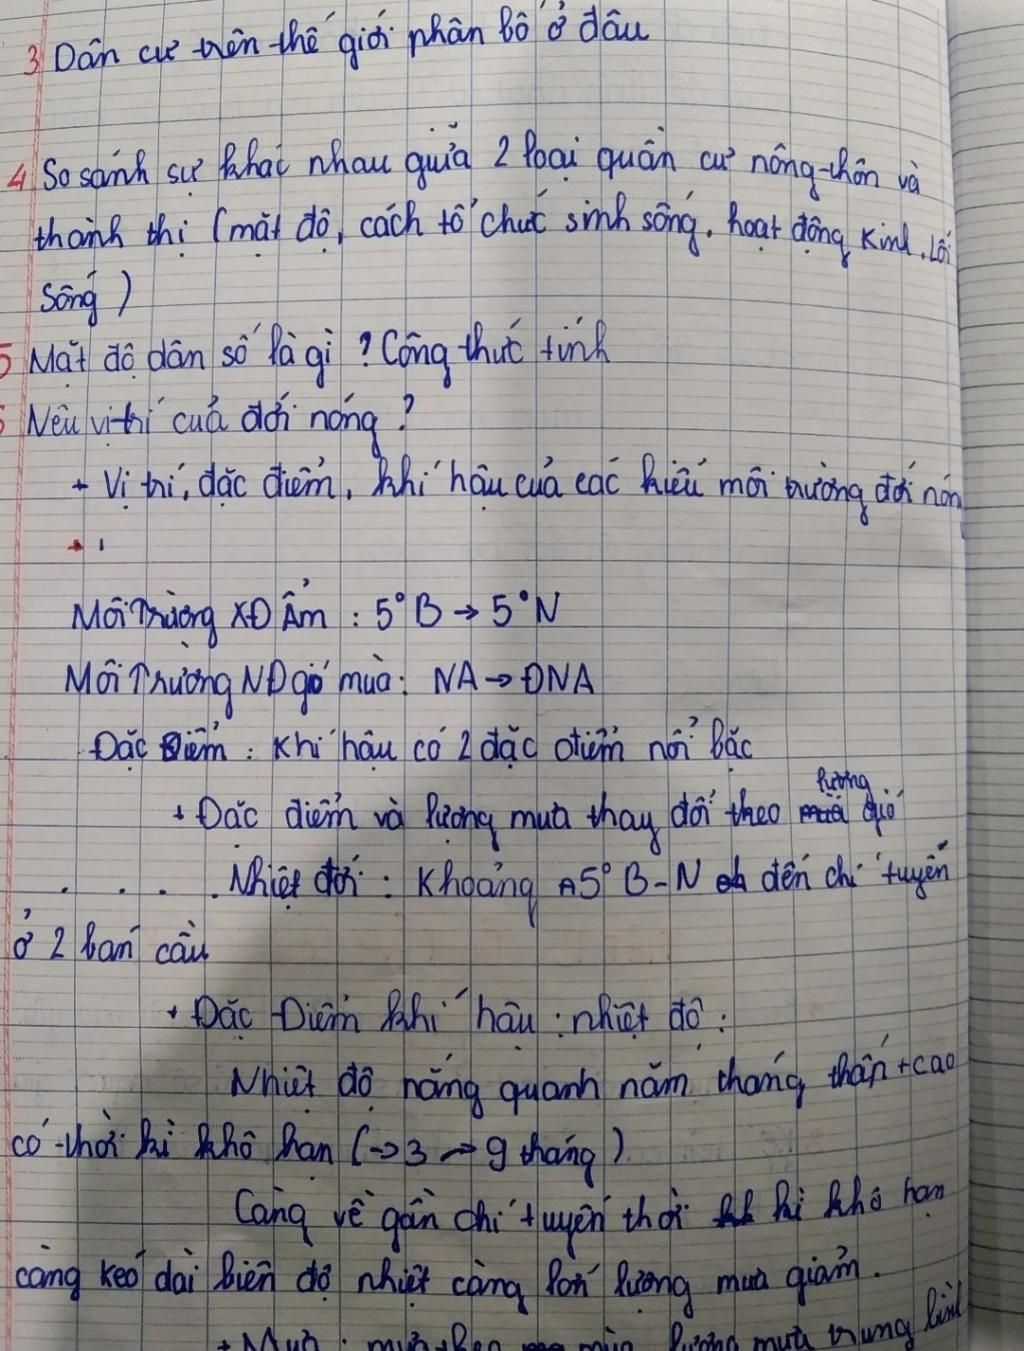 3 Dân cư trên thế giới phân bố ở đâu
4 So sánh sự khác nhau giữa 2 loại quần cư nông thôn và
thành thị (mật độ, cách tổ chức sinh sống, hoạt động kinh, Lối
sống)
5 Mật độ dân số là gì? Công thức tính
Nêu vị trí của đới nóng?
+ Vị trí, đặc điểm, khí hậu của các kiểu môi trường đới nón
+
Môi Trường XĐ Ẩm : 5°B → 5°N
Môi Trường NĐ gió mùa: NA → ĐNA
Đặc Điểm : Khí hậu có 2 đặc điểm nổi bậc
+ Đăc điểm và lượng mưa thay đổi theo lương gió
. . . . Nhiệt đới : Khoảng 5° B-N đến chí tuyến
ở 2 bán cầu
+ Đặc Điểm khí hậu : nhiệt độ :
Nhiệt độ nắng quanh năm tháng thấn + cao
có thời kì khô hạn (→ 3 → 9 tháng)
Càng về gần chí tuyến thời kì khô hạn
càng kéo dài biên độ nhiệt càng lớn lượng mưa giảm.
+ Mưa : mưa theo mùa lượng mưa trung bình